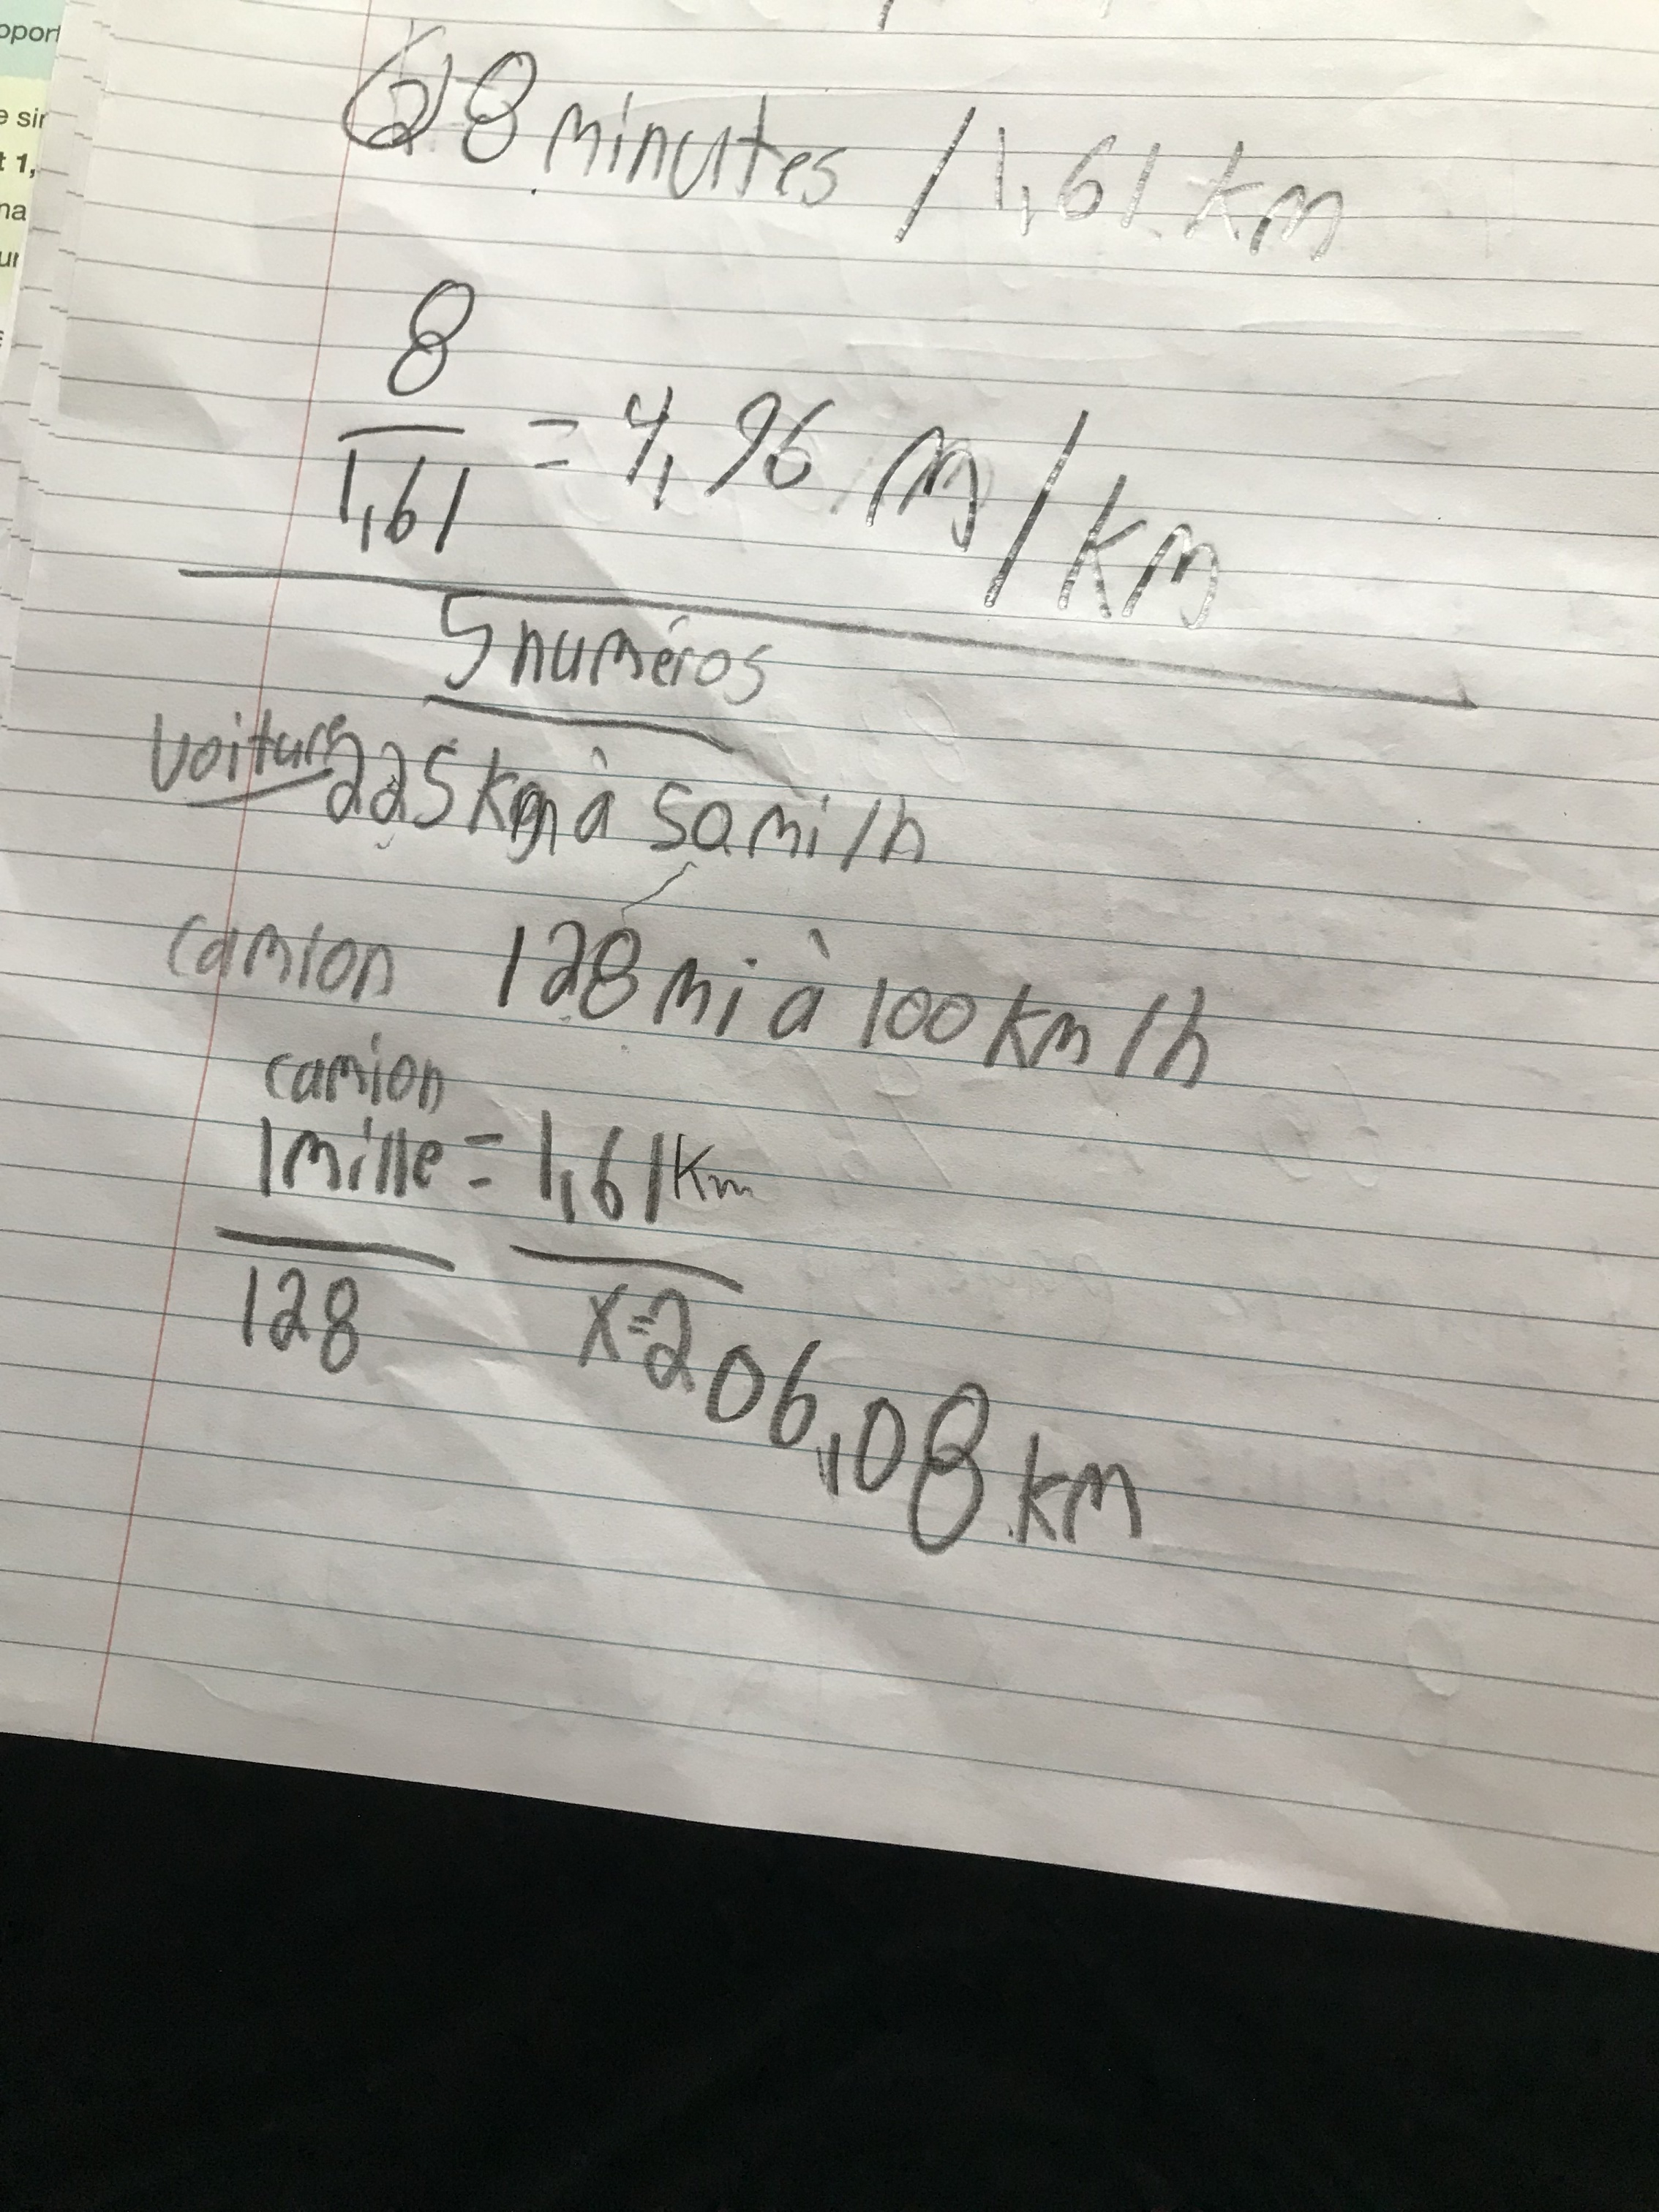 oport
e sir
t 1,
na
ur
8 minutes / 1,61 km
8
1,61
= 4,96 m/km
5 numéros
voiture 225 km à 50 mi/h
camion 128 mi à 100 km/h
camion
1 mille = 1,61 Km
128 x=206,08 km